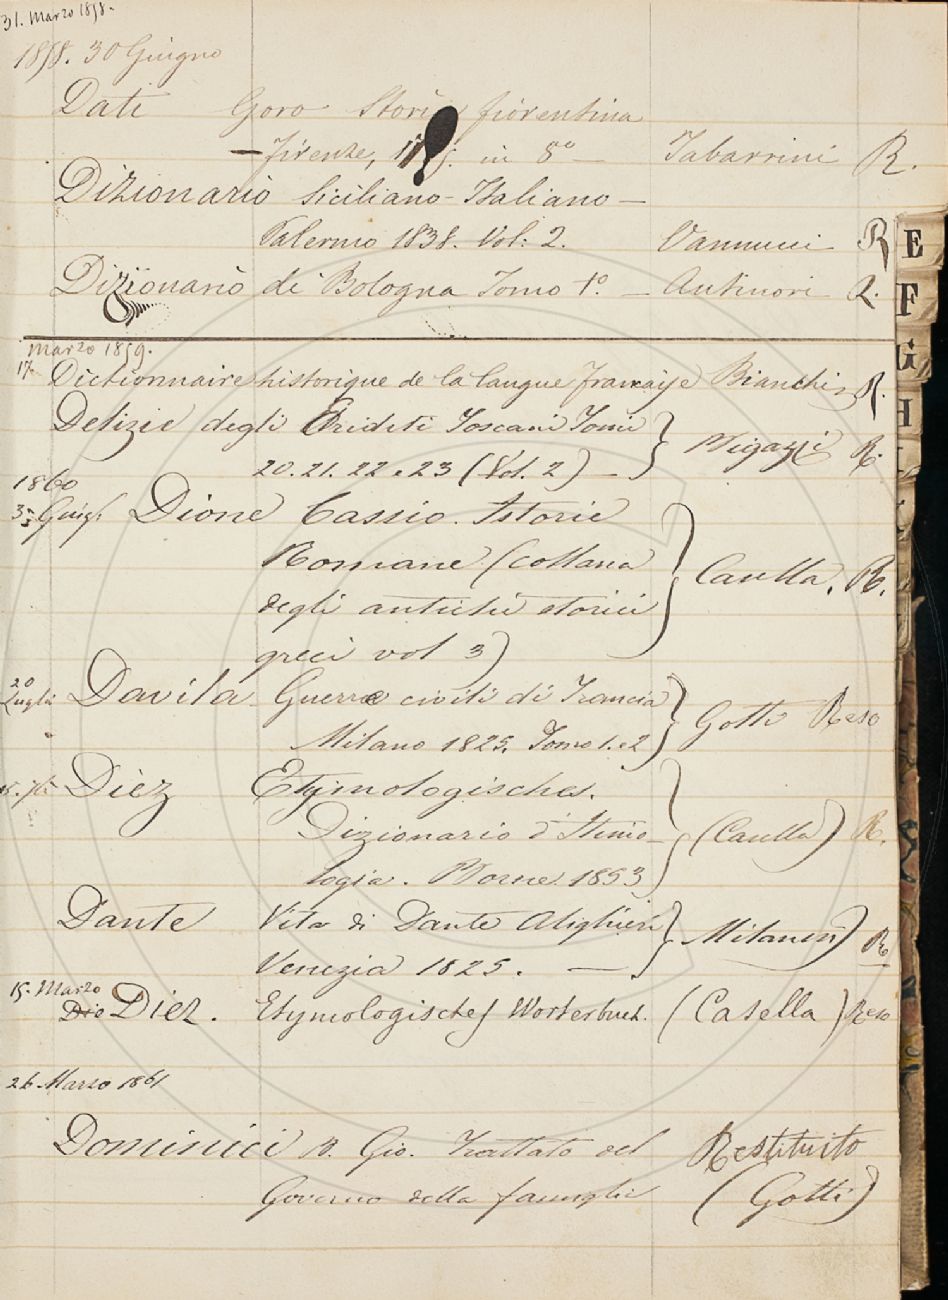 31. Marzo 1858.
1858. 30 Giugno
Dati Goro Storia fiorentina
Firenze, in 8° — Tabarrini R.
Dizionario Siciliano-Italiano —
Palermo 1838. Vol: 2. Vannucci R
Dizionario di Bologna Tomo 1.° — Antinori R.
Marzo 1859.
17. Dictionnaire historique de la langue française Bianchi R.
Delizie degli Eriditi Toscani Tomi
20. 21. 22 e 23 (Vol. 2) — R.
1860
Dione Cassio. Istorie
Romane (collana
degli antichi storici Casella. R.
greci vol 3)
20
Luglio Davila Guerre civili di Francia
Milano 1825. Tomo 1. e 2 Gotti Reso
Diez Etymologisches.
Dizionario d'Etimo-
logia. 1853 (Casella) R.
Dante Vita di Dante Alighieri
Venezia 1825. — Milanesi) R
15. Marzo
Die Diez. Etymologisches Worterbuch. (Casella) Reso
26 Marzo 1861
Dominici B. Gio. Trattato del Restituito
Governo della famiglia (Gotti)
E
F
G
H